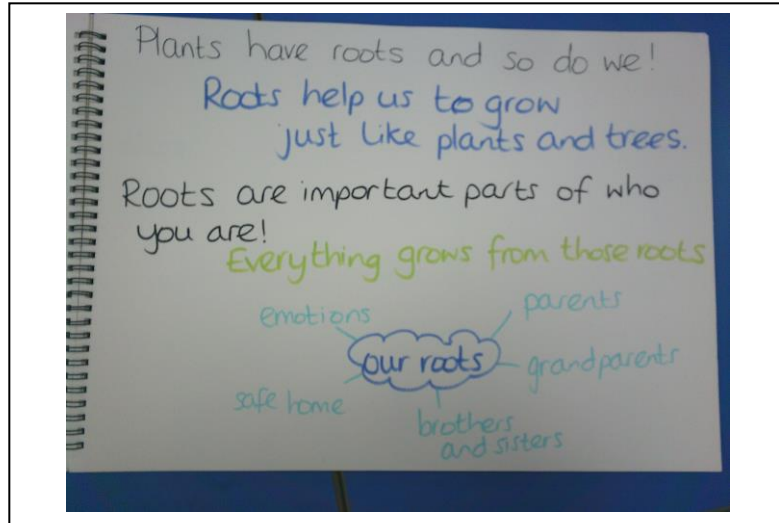 Plants have roots and so do we!
Roots help us to grow
just like plants and trees.
Roots are important parts of who
you are!
Everything grows from those roots
emotions
parents
our roots
grandparents
safe home
brothers
and sisters